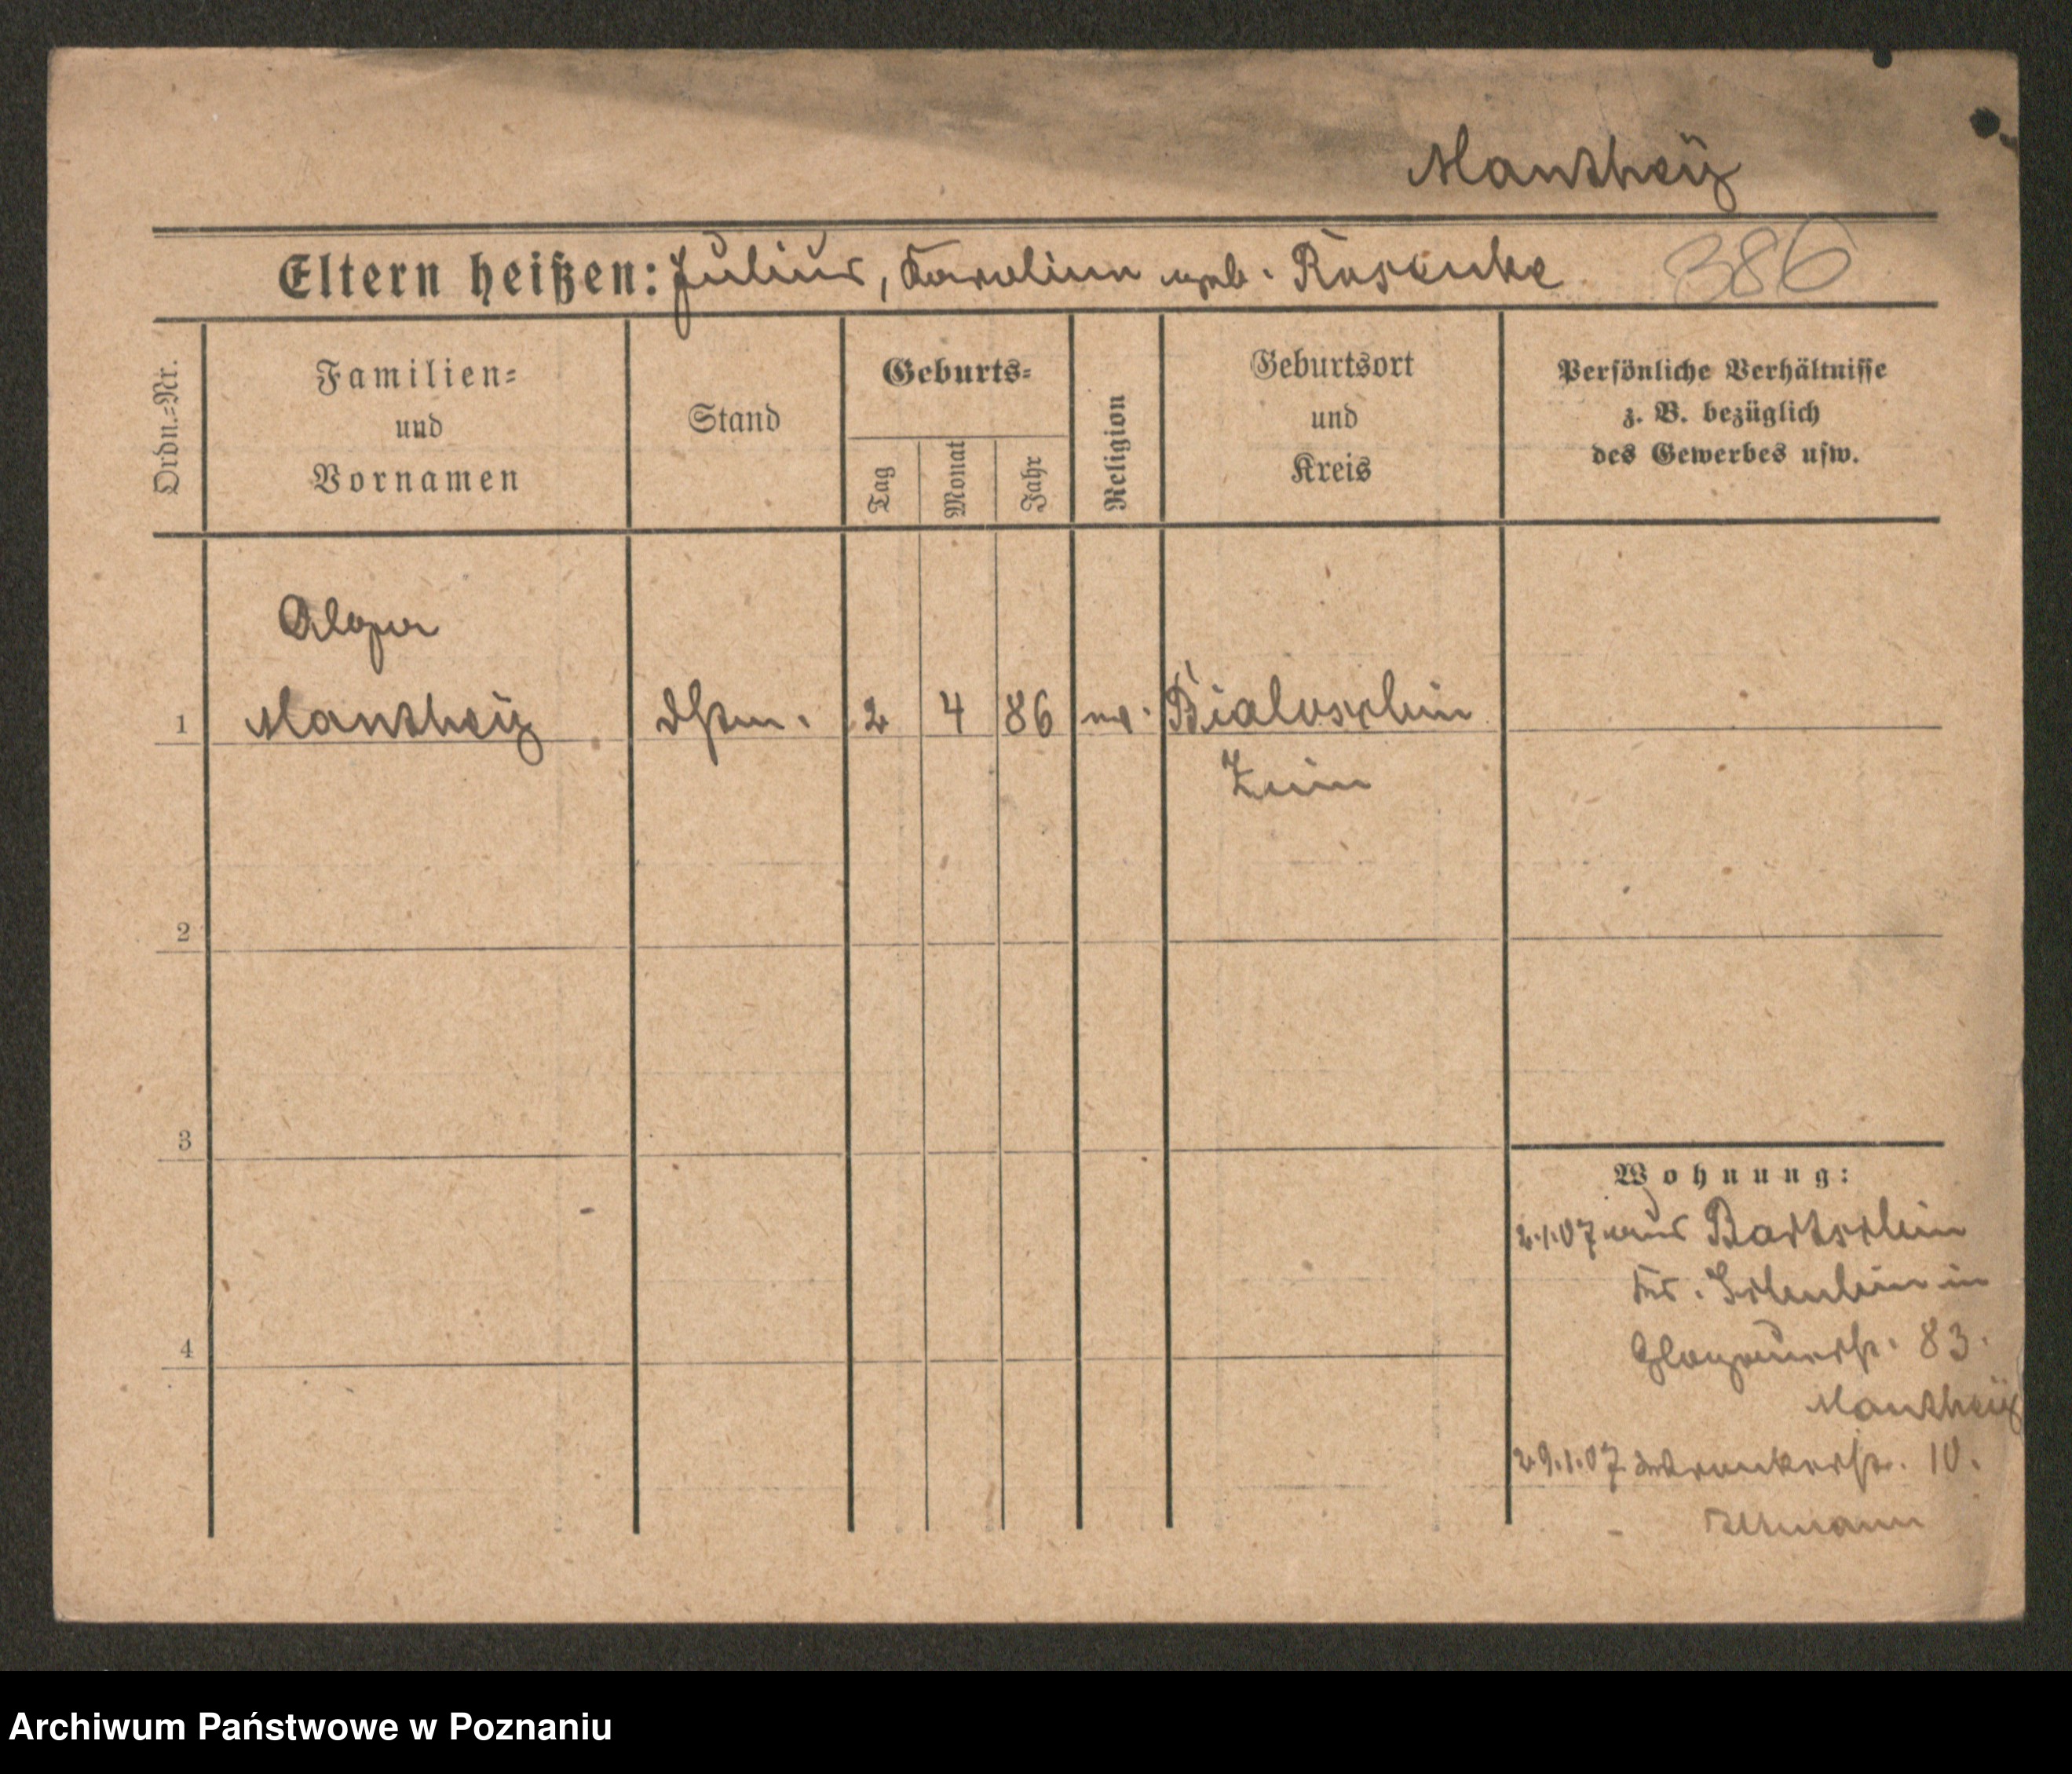 Manthey
Eltern heißen: Julius, Karoline geb. Rosenke 386
Ordn.=Nr.
Familien=
und
Vornamen
Stand
Geburts=
Tag
Monat
Jahr
Religion
Geburtsort
und
Kreis
Persönliche Verhältnisse
z. B. bezüglich
des Gewerbes usw.
1
Manthey
2 4 86 ev. Bialoschin
Znin
2
3
4
Wohnung:
2.1.07 aus Bartschin
in
Glogauerstr. 83.
Manthey
29.1.07 Wronkerstr. 10.
Ullmann
Archiwum Państwowe w Poznaniu